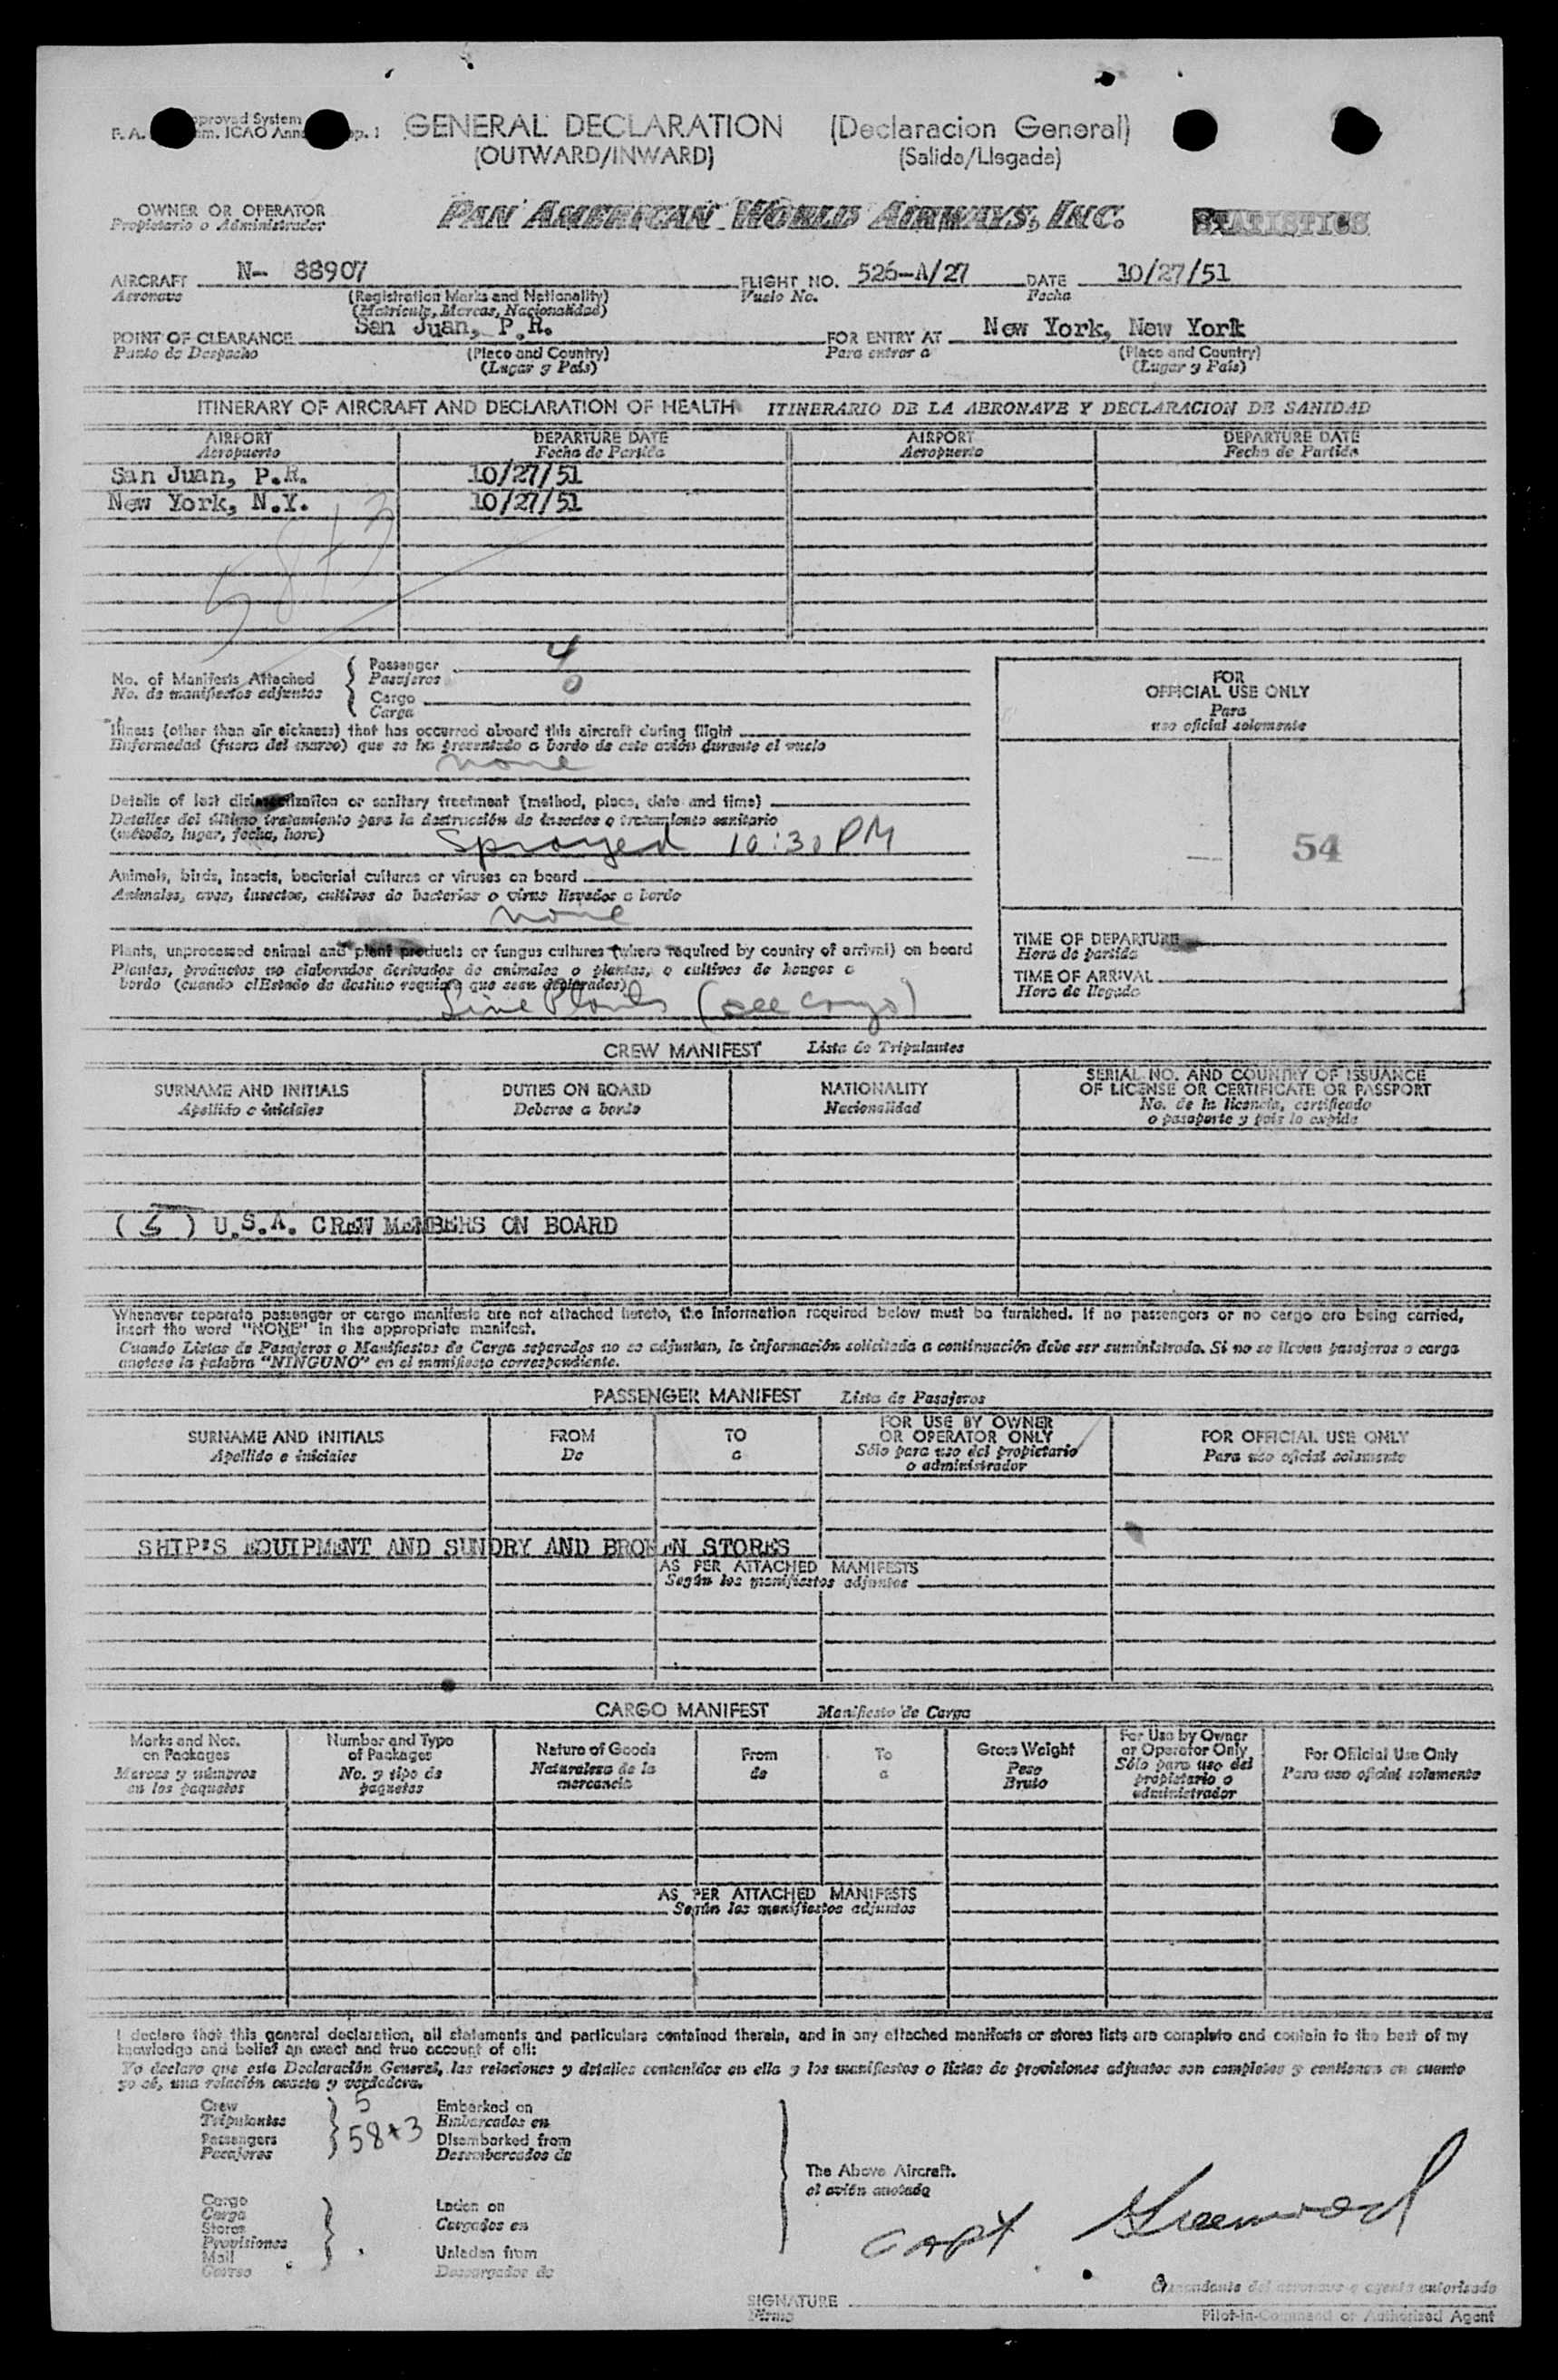 GENERAL DECLARATION (Declaracion General)
(OUTWARD/INWARD) (Salida/Llegada)
OWNER OR OPERATOR
Propietario o Administrador
PAN AMERICAN WORLD AIRWAYS, INC.
STATISTICS
AIRCRAFT N- 88907 FLIGHT NO. 526-A/27 DATE 10/27/51
Aeronave (Registration Marks and Nationality) Vuelo No. Fecha
(Matricula, Marcas, Nacionalidad)
POINT OF CLEARANCE San Juan, P.R. FOR ENTRY AT New York, New York
Punto de Despacho (Place and Country) Para entrar a (Place and Country)
(Lugar y País) (Lugar y País)
ITINERARY OF AIRCRAFT AND DECLARATION OF HEALTH ITINERARIO DE LA AERONAVE Y DECLARACION DE SANIDAD
AIRPORT DEPARTURE DATE AIRPORT DEPARTURE DATE
Aeropuerto Fecha de Partida Aeropuerto Fecha de Partida
San Juan, P.R. 10/27/51
New York, N.Y. 10/27/51
58+3
No. of Manifests Attached
No. de manifiestos adjuntos
Passenger 4
Pasajeros
Cargo
Carga
Illness (other than air sickness) that has occurred aboard this aircraft during flight
Enfermedad (fuera del mareo) que se ha presentado a bordo de este avión durante el vuelo
none
Details of last disinsectization or sanitary treatment (method, place, date and time)
Detalles del último tratamiento para la destrucción de insectos o tratamiento sanitario
(método, lugar, fecha, hora)
Sprayed 10:30 PM
Animals, birds, insects, bacterial cultures or viruses on board
Animales, aves, insectos, cultivos de bacterias o virus llevados a bordo
none
Plants, unprocessed animal and plant products or fungus cultures (where required by country of arrival) on board
Plantas, productos no elaborados derivados de animales o plantas, o cultivos de hongos a
bordo (cuando el Estado de destino requiera que sean declarados)
Live Plants (see cargo)
FOR
OFFICIAL USE ONLY
Para
uso oficial solamente
54
TIME OF DEPARTURE
Hora de partida
TIME OF ARRIVAL
Hora de llegada
CREW MANIFEST Lista de Tripulantes
SURNAME AND INITIALS DUTIES ON BOARD NATIONALITY SERIAL NO. AND COUNTRY OF ISSUANCE
OF LICENSE OR CERTIFICATE OR PASSPORT
Apellido e iniciales Deberes a bordo Nacionalidad No. de la licencia, certificado
o pasaporte y país lo expide
(5) U.S.A. CREW MEMBERS ON BOARD
Whenever separate passenger or cargo manifests are not attached hereto, the information required below must be furnished. If no passengers or no cargo are being carried,
insert the word "NONE" in the appropriate manifest.
Cuando Listas de Pasajeros o Manifiestos de Carga separados no se adjuntan, la información solicitada a continuación debe ser suministrada. Si no se llevan pasajeros o carga
anotese la palabra "NINGUNO" en el manifiesto correspondiente.
PASSENGER MANIFEST Lista de Pasajeros
SURNAME AND INITIALS FROM TO FOR USE BY OWNER OR OPERATOR ONLY FOR OFFICIAL USE ONLY
Apellido e iniciales De a Sólo para uso del propietario o administrador Para uso oficial solamente
SHIP'S EQUIPMENT AND SUNDRY AND BROKEN STORES
AS PER ATTACHED MANIFESTS
Según los manifiestos adjuntos
CARGO MANIFEST Manifiesto de Carga
Marks and Nos. on Packages Number and Type of Packages Nature of Goods From To Gross Weight For Use by Owner or Operator Only For Official Use Only
Marcas y números en los paquetes No. y tipo de paquetes Naturaleza de la mercancia de a Peso Bruto Sólo para uso del propietario o administrador Para uso oficial solamente
AS PER ATTACHED MANIFESTS
Según los manifiestos adjuntos
I declare that this general declaration, all statements and particulars contained therein, and in any attached manifests or stores lists are complete and contain to the best of my
knowledge and belief an exact and true account of all:
Yo declaro que esta Declaración General, las relaciones y detalles contenidos en ella y los manifiestos o listas de provisiones adjuntos son completos y contienen en cuanto
yo sé, una relación exacta y verdadera.
Crew 5 Embarked on
Tripulantes Embarcados en
Passengers 58+3 Disembarked from
Pasajeros Desembarcados de
The Above Aircraft.
el avión anotado
Cargo Laden on
Carga
Stores Cargados en
Provisiones
Mail Unladen from
Correo Descargados de
CAPT Greenwood
Comandante del aeronave o agente autorizado
SIGNATURE
Firma
Pilot-in-Command or Authorized Agent